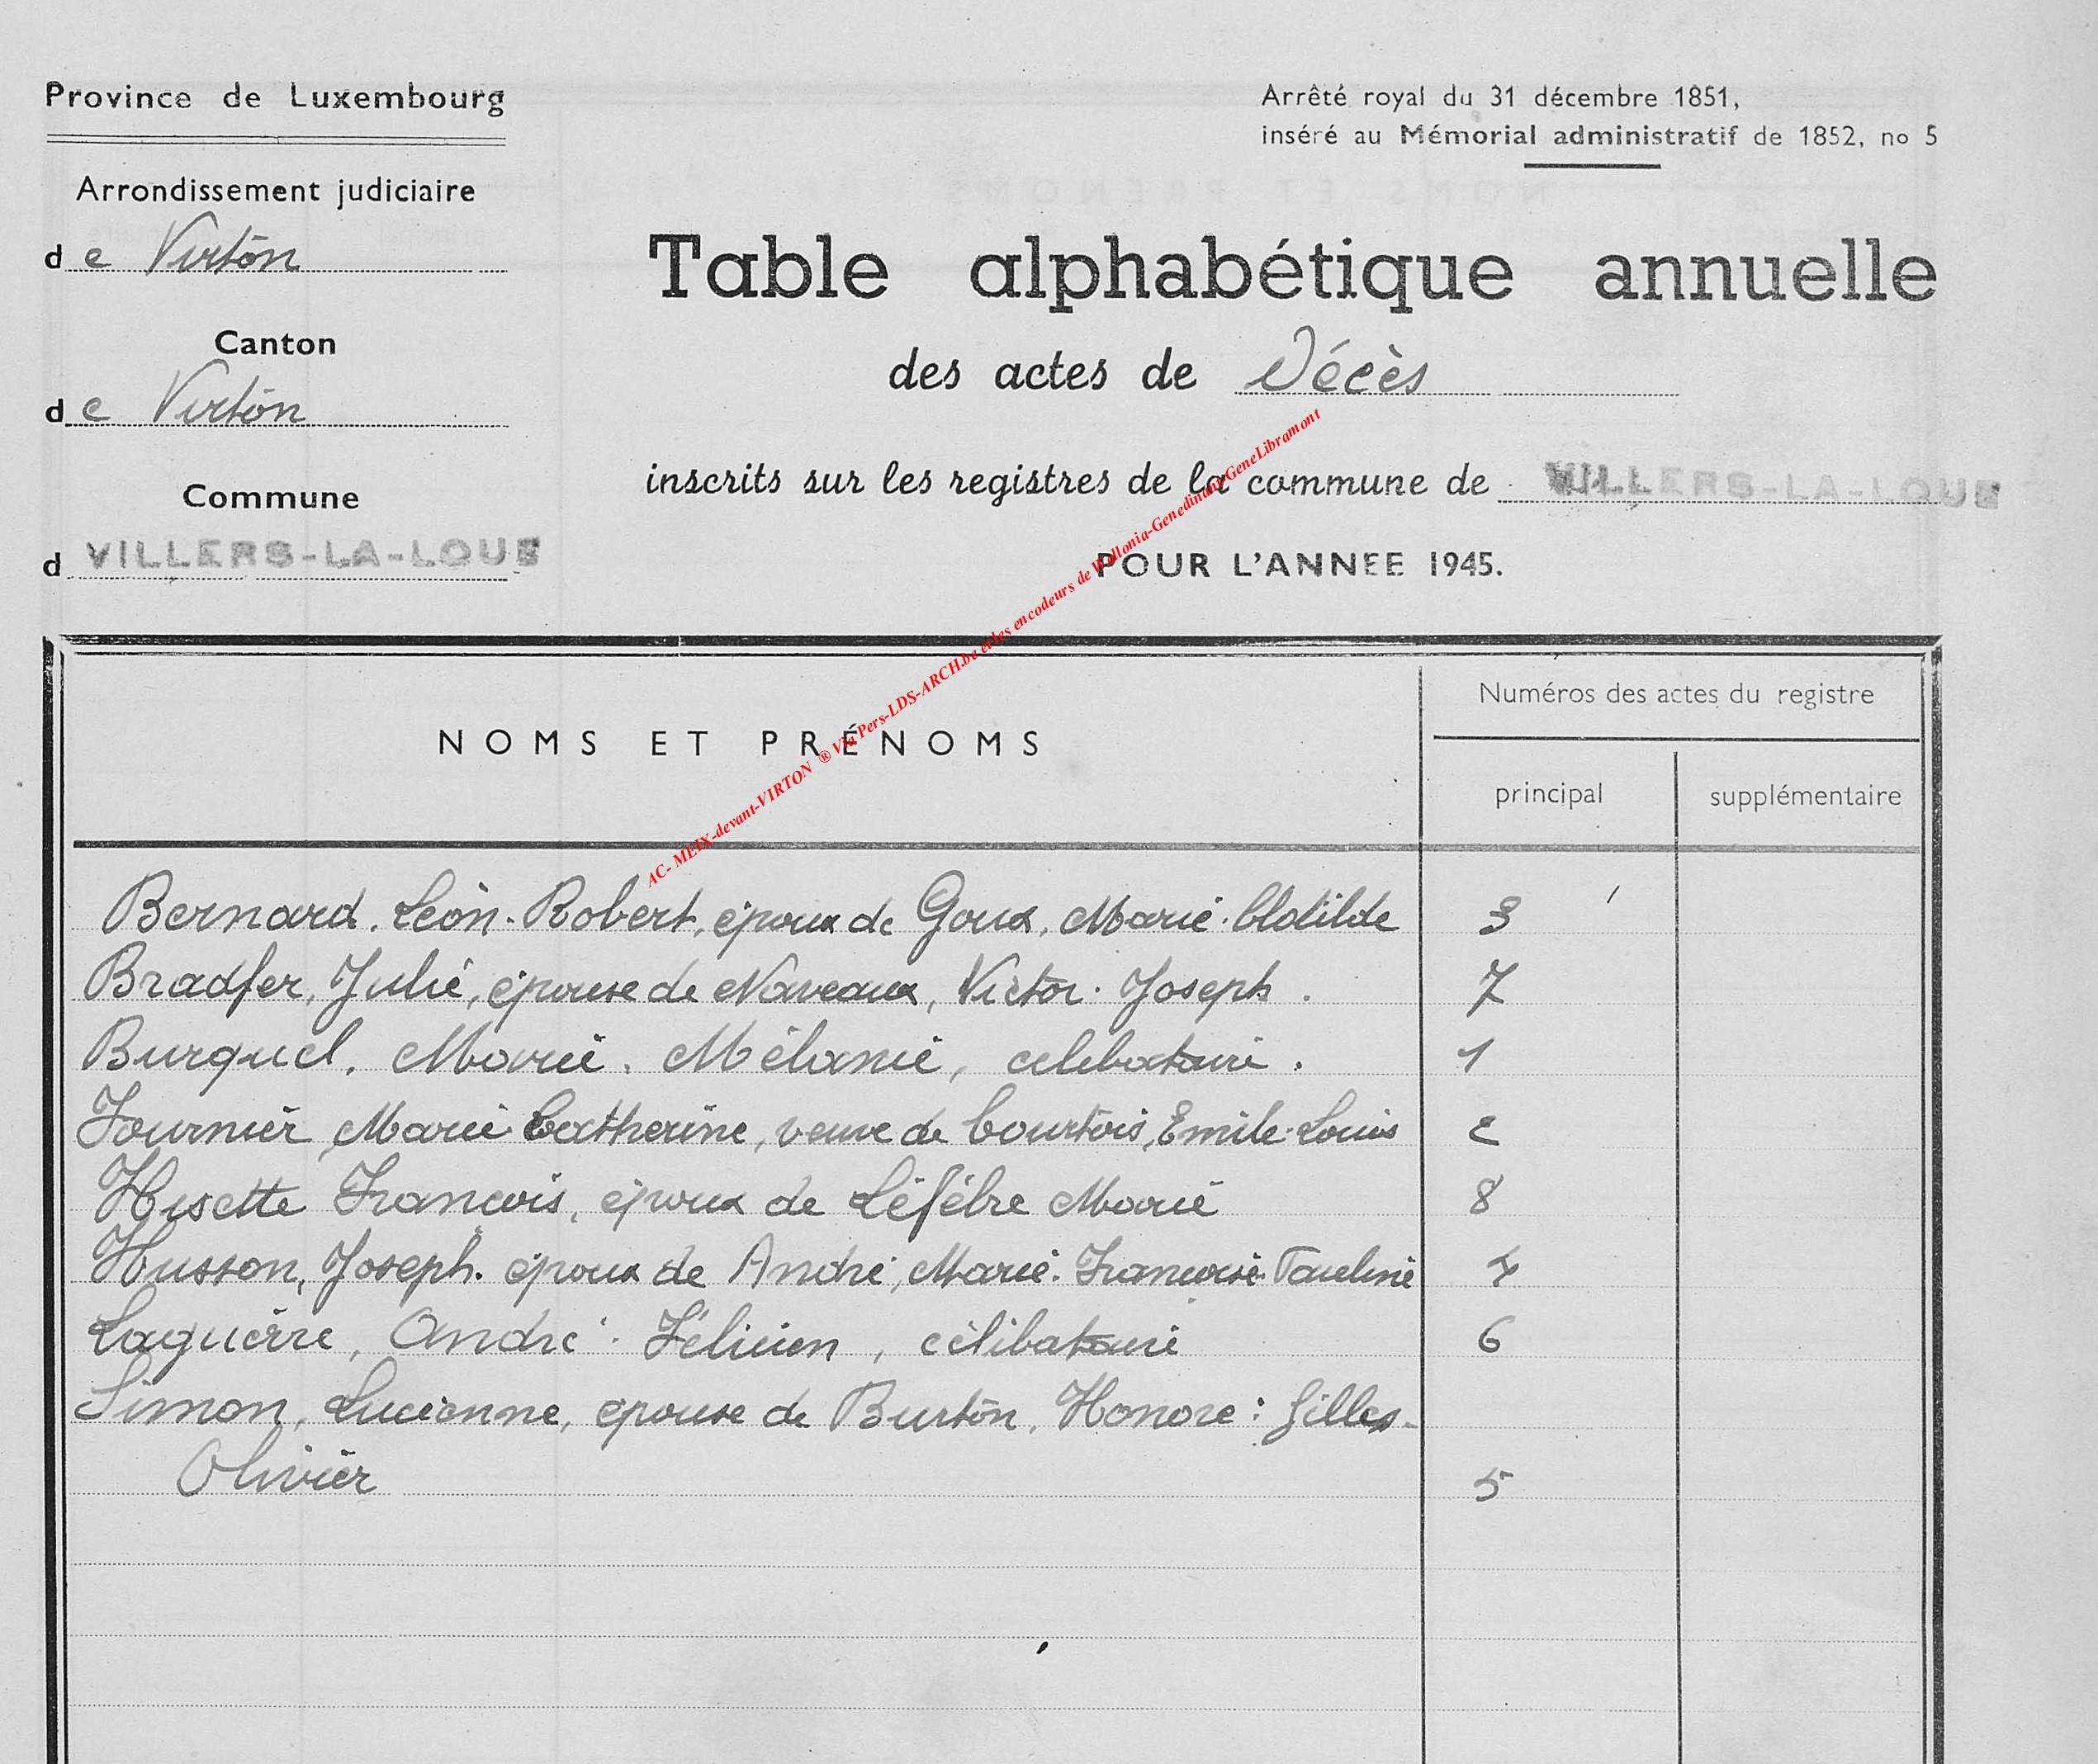 Province de Luxembourg
Arrêté royal du 31 décembre 1851,
inséré au Mémorial administratif de 1852, no 5
Arrondissement judiciaire
de Virton
Table alphabétique annuelle
Canton
de Virton
des actes de Décès
Commune
d VILLERS-LA-LOUE
inscrits sur les registres de la commune de VILLERS-LA-LOUE
POUR L'ANNEE 1945.
AC- MEIX-devant-VIRTON ® Via Pers-LDS-ARCH.be et les encodeurs de Wallonia-Genedinant-GeneLibramont
NOMS ET PRÉNOMS
Numéros des actes du registre
principal
supplémentaire
Bernard. Léon-Robert, époux de Goux, Marie-Clotilde 3
Bradfer, Julie, épouse de Naveaux, Victor-Joseph. 7
Burquel. Marie. Mélanie, celebataire. 1
Fournier Marie Catherine, veuve de Courtois, Emile-Louis 2
Hisette François, époux de Léfébre Marie 8
Husson, Joseph. époux de André, Marie-Françoise-Pauline 4
Laguerre, André-Félicien, célibataire 6
Simon, Lucienne, épouse de Burton, Honoré: Gilles-
Olivier 5